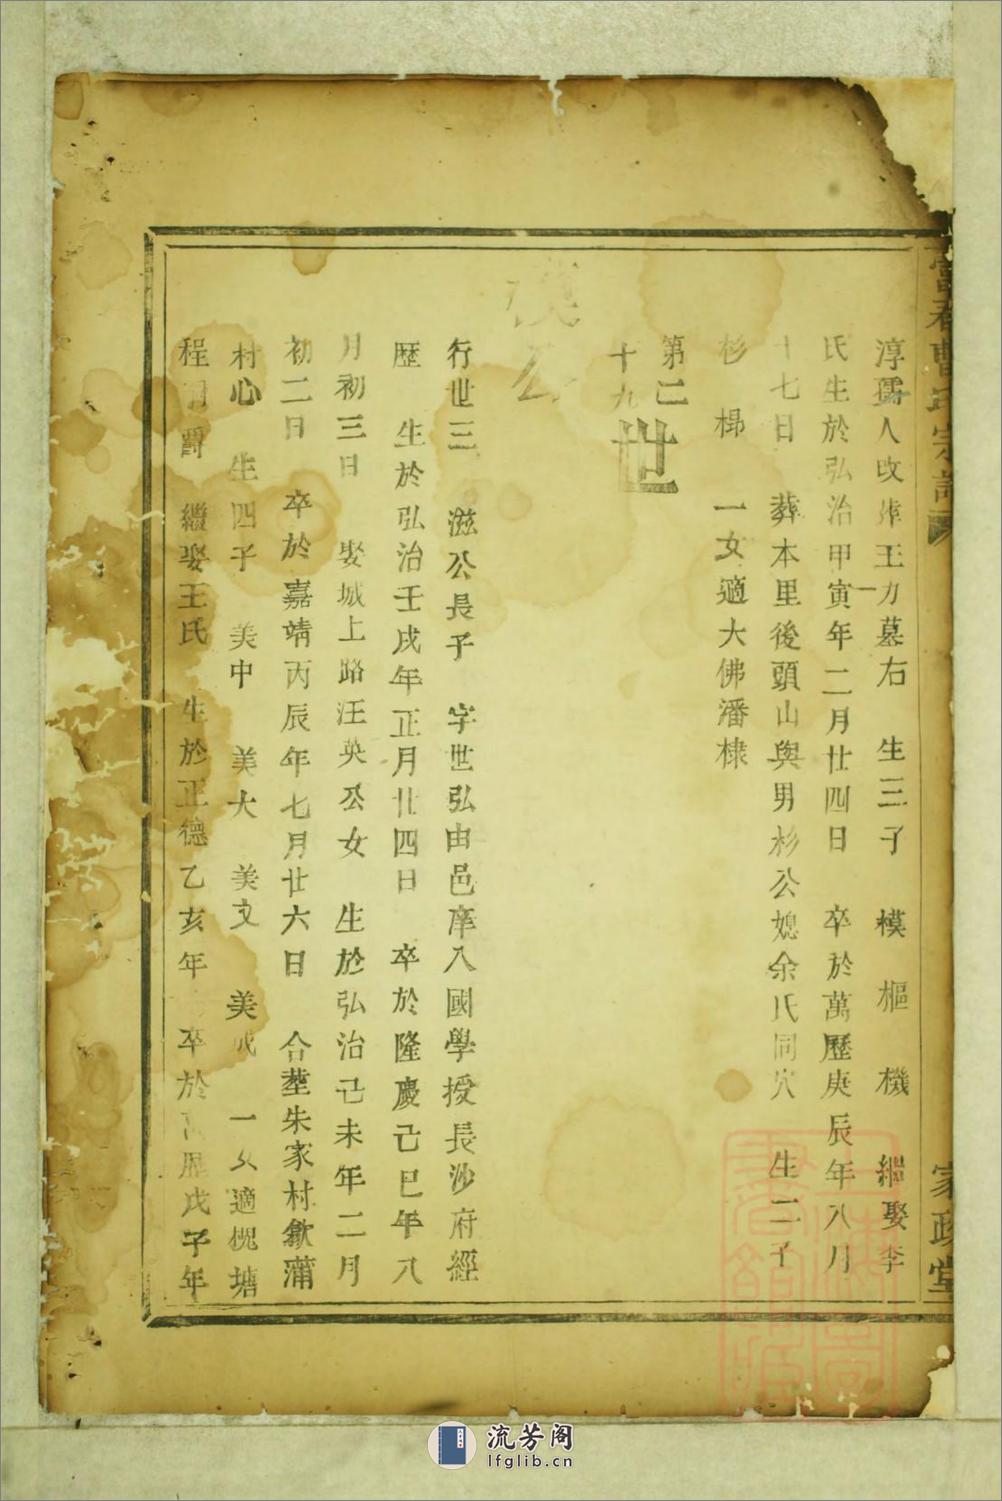 春曹氏宗譜
家政堂
淳孺人改葬王力墓右 生三子 模 樞 機 繼娶李
氏生於弘治甲寅年二月廿四日 卒於萬歷庚辰年八月
十七日 葬本里後頭山與男杉公媳余氏同穴 生二子
杉 梯 一女適大佛潘棣
第二
十九
世
公
行世三 滋公長子 字世弘由邑庠入國學授長沙府經
歷 生於弘治壬戌年正月廿四日 卒於隆慶己巳年八
月初三日 娶城上路汪英公女 生於弘治己未年二月
初二日 卒於嘉靖丙辰年七月廿六日 合塟朱家村歙蒲
村心 生四子 美中 美大 美文 美 一女適槐塘
程 爵 繼娶王氏 生於正德乙亥年 卒於萬歷戊子年
上海圖書館藏
流芳阁
lfglib.cn